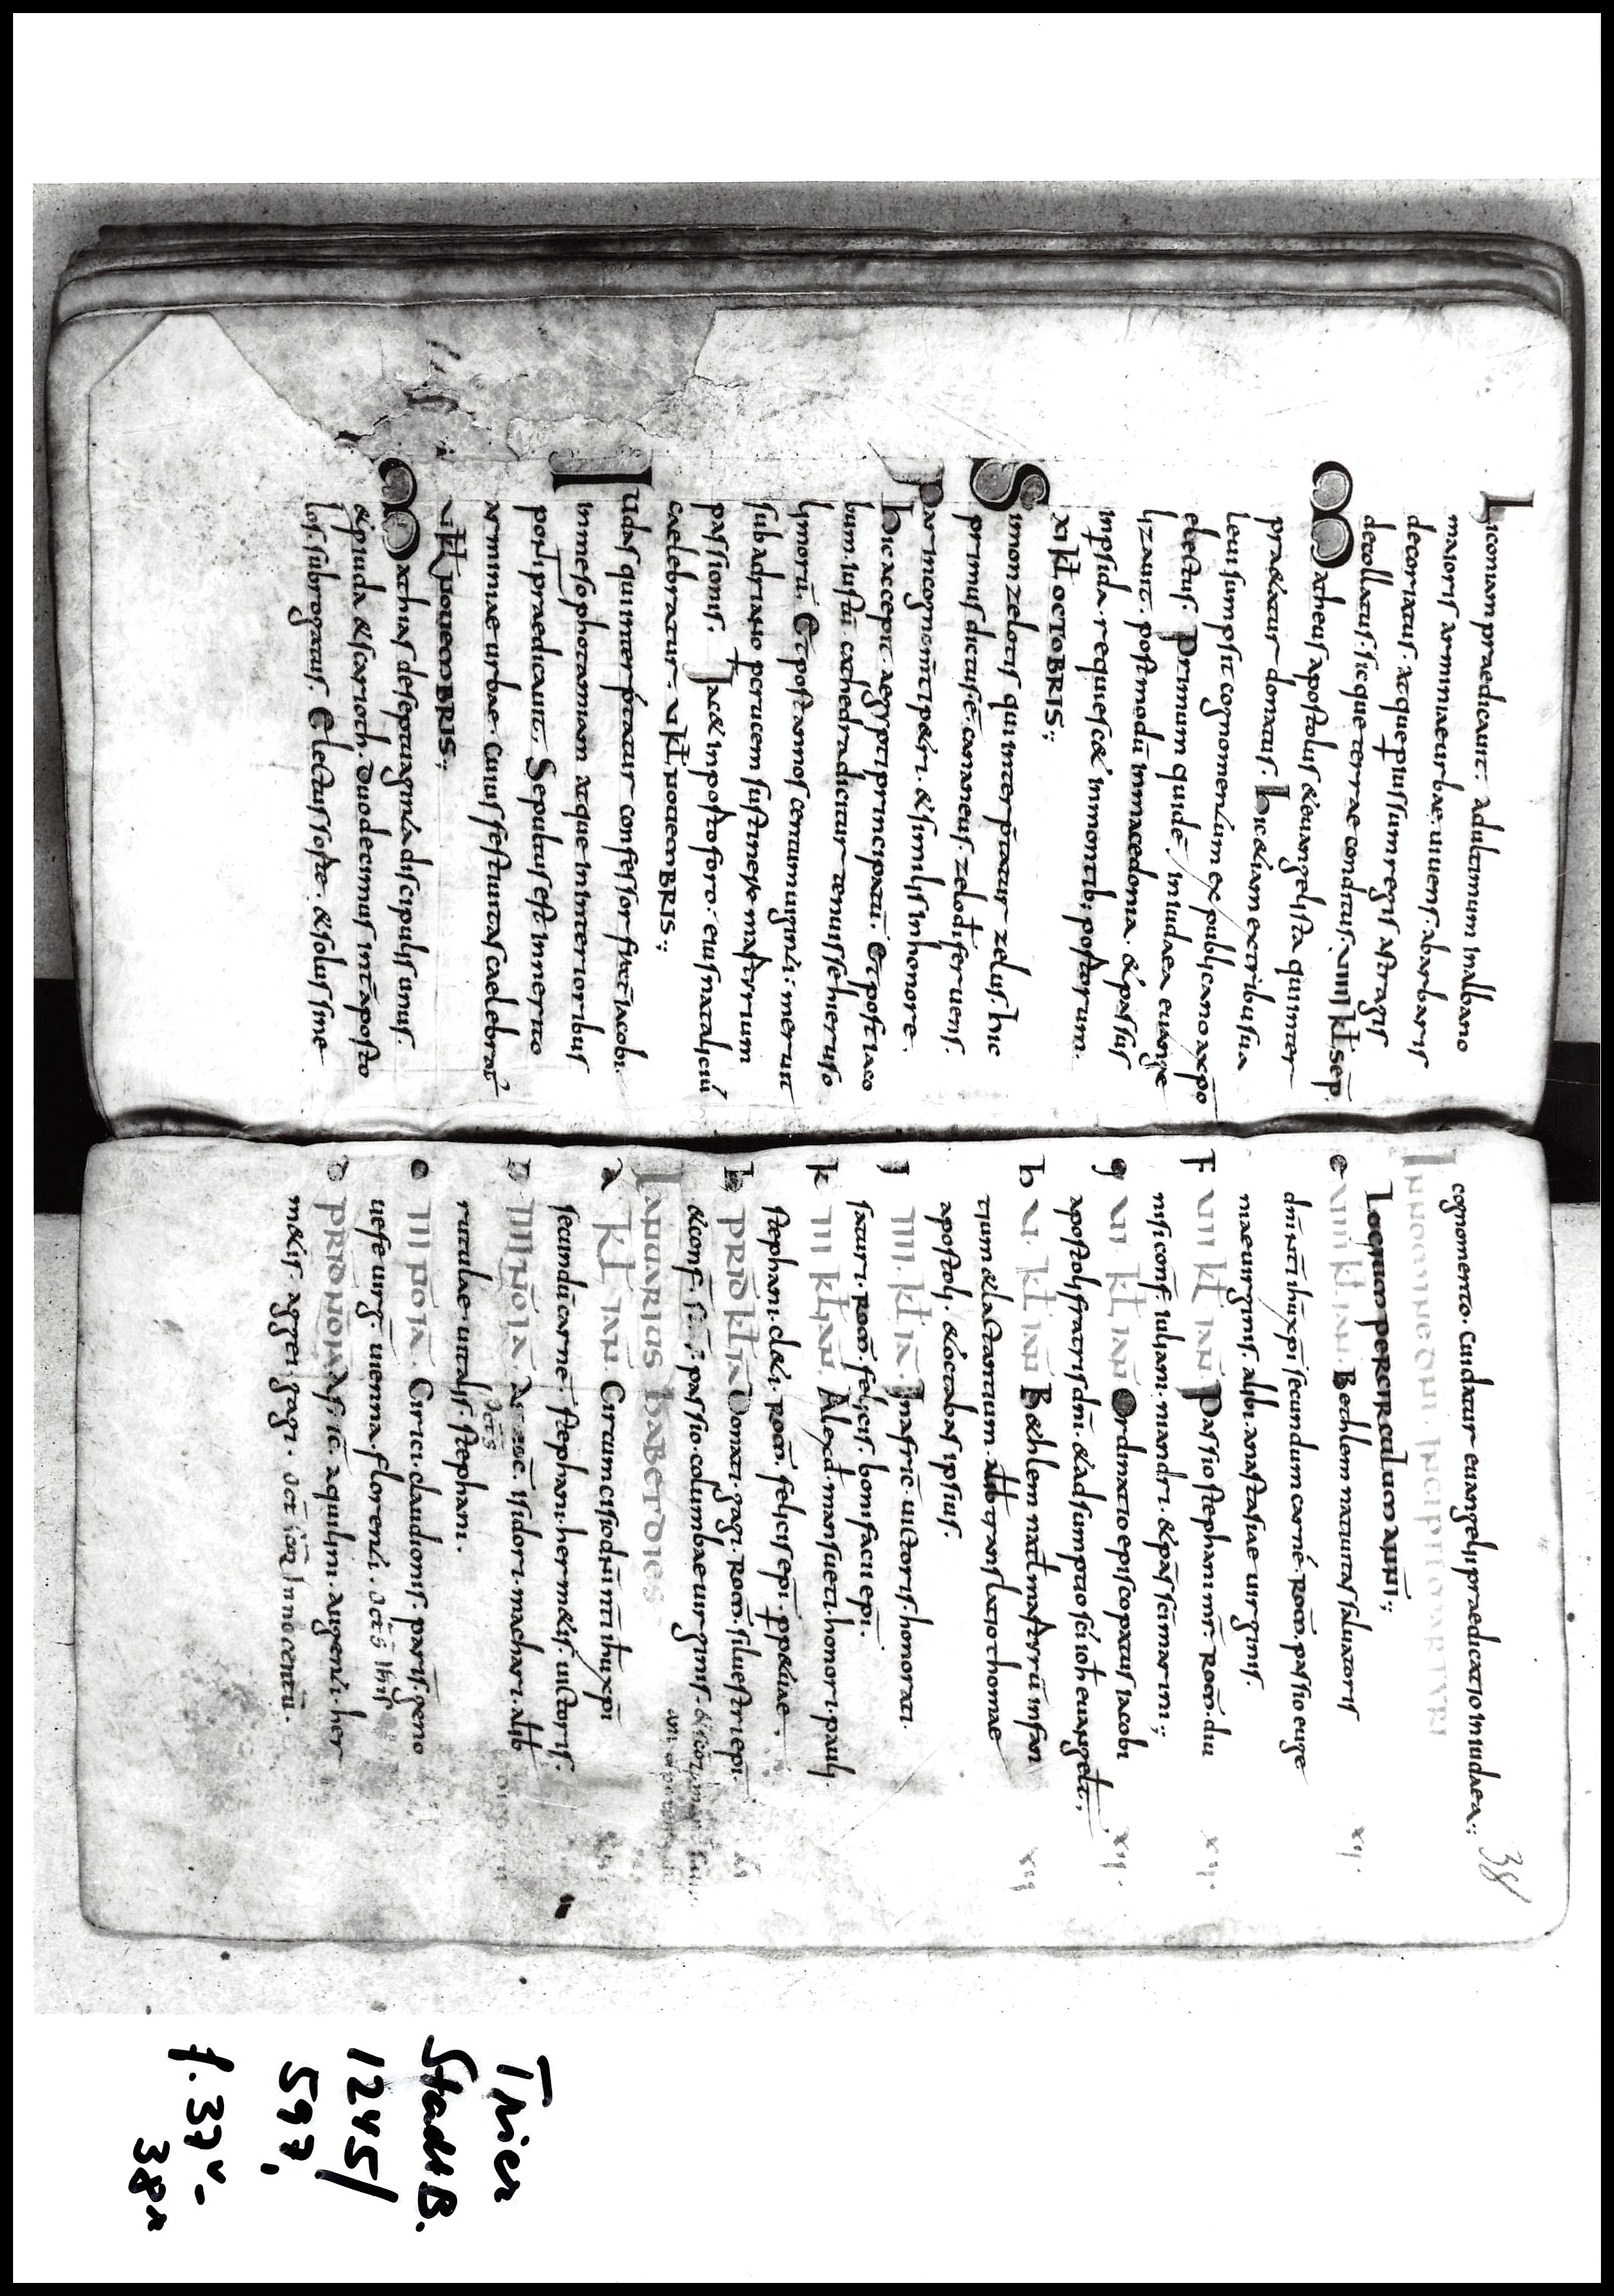 Liconiam praedicauit. adultimum inalbano
maioris arminiae urbae. uiuens. abarbaris
decoriatus. atque piussum regis astragis
decollatus. sicque terrae conditus. VIIII kł sep̄.
Matheus apostolus &euangelista quiinter
pra&atur donatus. Hic&iam extribusua
leui sumpsit cognomentum expublicano axp̄o
electus. Primum quidē iniudaea euange
lizauit. post modū inmacedonia. &passus
inpsida. requiesc& inmontib; postorum.
XI kł OCTOBRIS:;
Simon zelotis qui inter p̄tatur zelus. hic
primus dictus ē. cananeus. zelo dī feruens.
Par incognomīti p&ri. &similis inhonore.
hic accepit. aegypti principatū. Et post iaco
bum. iustū. cathedra dicitur tenuisse hieruso
limorū. Et post annos centum uiginti: meruit
sub adriano p crucem sustinere martirium
passionis. Iac& inpostoforo. eius nataliciū
caelebratur. V kł NOUEMBRIS:;
Iudas qui inter p̄tatur confessor frat̄ iacobi.
inmesophotamiam atque ininterioribus
ponti praedicauit. Sepultus est innerito
arminiae urbae. Cuius festiuitas caelebrat̄
VI kł NOUEMBRIS:;
Mathias deseptuaginta discipulis unus.
&piuda &scarioth. Duodecimus int̄ aposto
los. subrogatus. Electus sorte. &solus sine
38
cognomento. Cui datur euangelii praedicatio iniudaea:;
INNOMINE DNI. INCIPIT MARTIRI
LOGIUM PER CIRCULUM ANNI:;
e VIII kł IAN. Bethlem natiuitas saluatoris XII.
dn̄i nr̄i ihūxp̄i secundum carnē. Rom̄. passio euge
mae uirginis. alibi. anastasiae uirginis.
F VII kł IAN̄. Passio stephani mr̄. Rom̄. diu XII.
nisi conf̄. iuliani. niandri. &pas̄ sc̄i marini:;
g VI kł IAN̄ Ordinatio episcopatus iacobi XII.
apostoli fratris dn̄i. &adsumptio sc̄i ioh̄ euangelī,
h V. kł IAN̄ B&hlem nat̄ martirū infan XII
tium &lactantium. alib translatio thomae
apostoli. &octabas ipsius.
I IIII. kł IĀ. Inafric̄. uictoris. honorati.
saturi. Rom̄. felicis. bonifacii epī.
k III kł IAN̄. Alexd̄. mansueti. honori. pauli.
stephani. cl&i. Rom̄. felicis epī. pp&uae.
PRID kł IĀ Donati. gagi. Rom̄. siluestri epī.
&conf̄. passio. columbae uirginis.
IANUARIUS HABET DIES
a kł IAN̄. Circumcisio dn̄i nr̄i ihūxp̄i
secundū carnē. stephani. herm&is. uictoris.
IIII NŌ IĀ. isidori. machari. alib
Oct̄s
rutulae. uitalis. stephani.
III NŌ IĀ. Cirici. claudionis. paris̄. geno
uefe uirḡ. uienna. florenti. oct̄s ihs̄
PRID NON IĀ. Afric̄. aquilini. augenti. her
m&is. aggei. gagi. oct̄ sc̄orum Innocentū.
Trier
StadtB.
1245/
597,
f. 37v-
38r